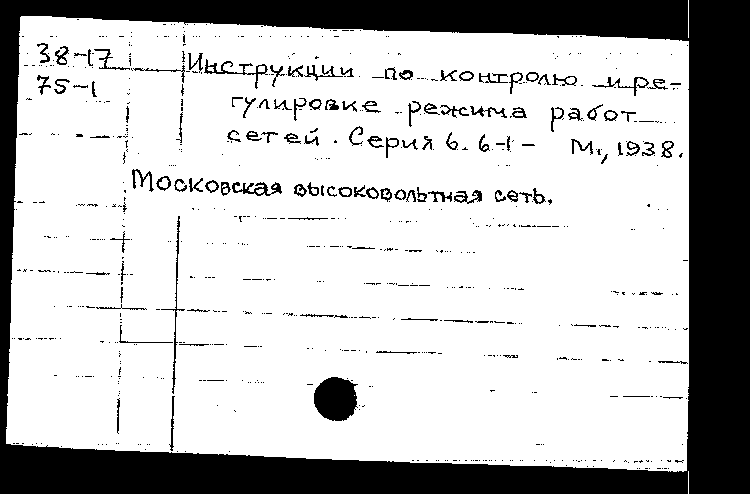 38-17
75-1
Инструкции по контролю и ре-
гулировке режима работ
сетей. Серия 6. 6-1- М., 1938.
Московская высоковольтная сеть.